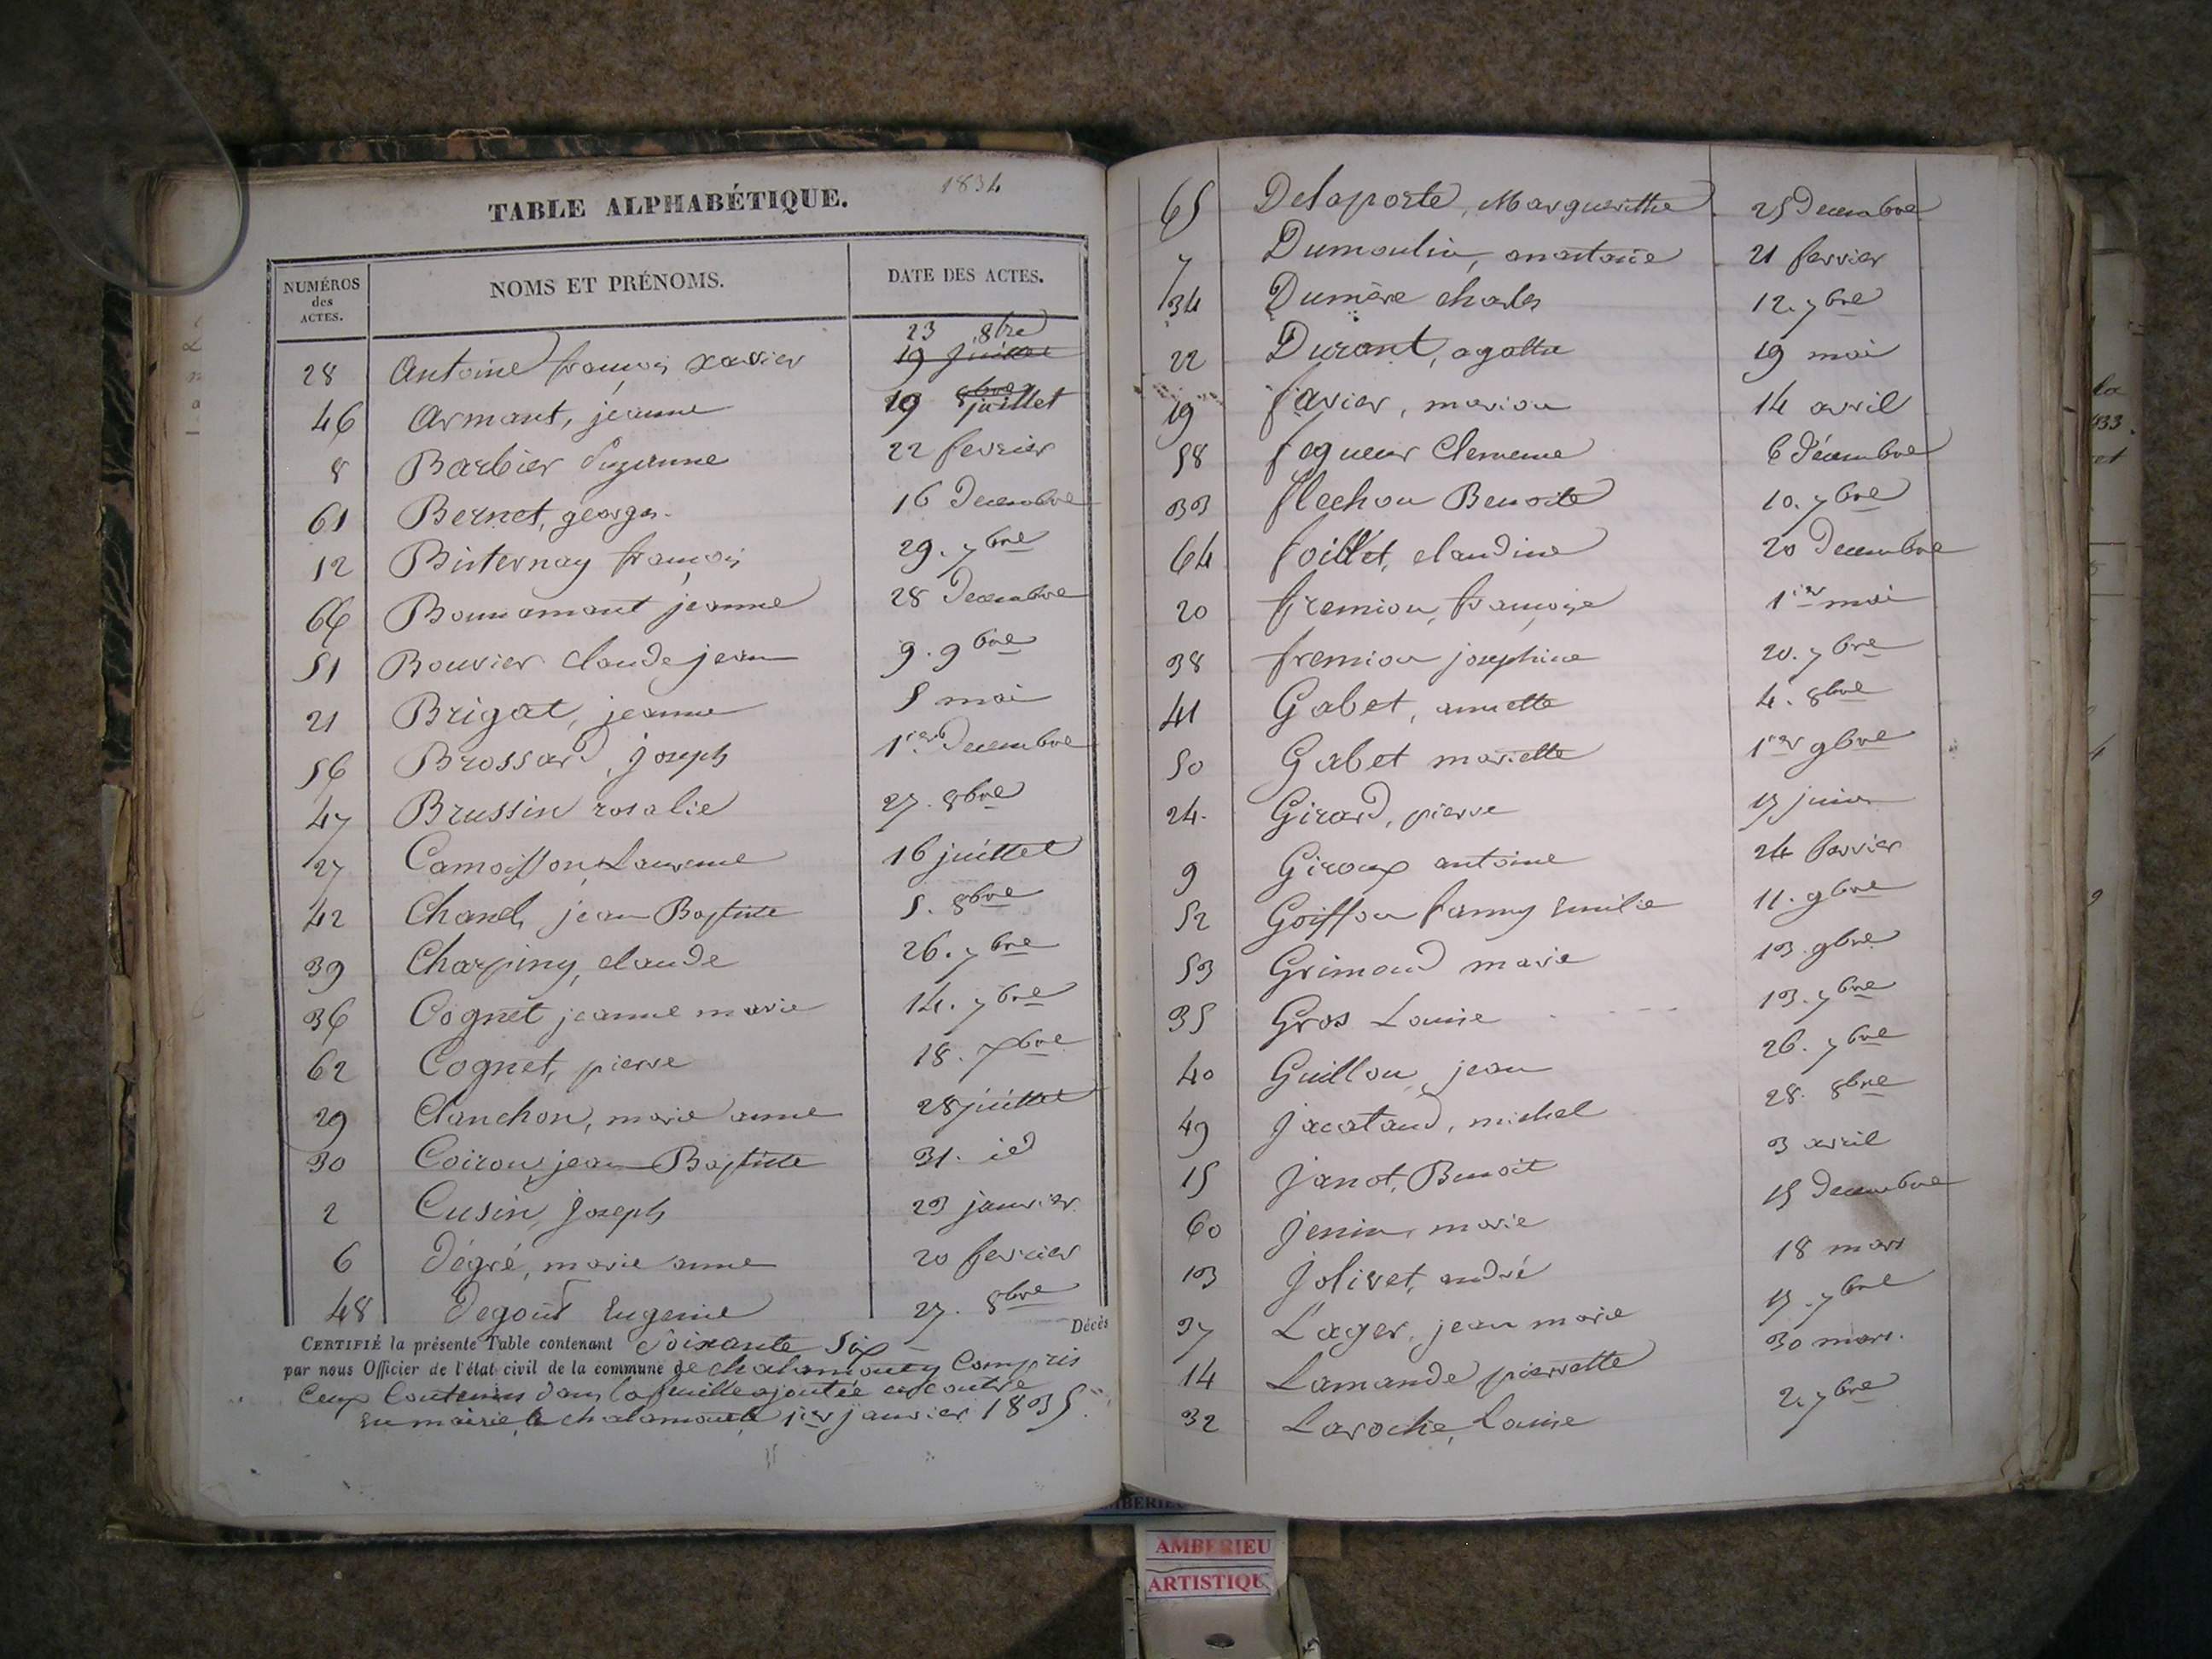 1834
TABLE ALPHABÉTIQUE.
NUMÉROS des ACTES. NOMS ET PRÉNOMS. DATE DES ACTES.
23 8bre
28 Antoine françois xavier 19 juillet
46 Armant, jeanne 19 8bre juillet
8 Barbier Suzanne 22 fevrier
61 Bernet, georges 16 Decembre
12 Binternay françois 29. 7bre
66 Bonnamant jeanne 28 Decembre
51 Bouvier claude jean 9. 9bre
21 Brigat, jeanne 5 mai
56 Brossard, joseph 1er Decembre
47 Brussin rosalie 27. 8bre
27 Camoisson Laurence 16 juillet
42 Chanel, jean Baptiste 5. 8bre
39 Charpiny, claude 26. 7bre
36 Cognet jeanne marie 14. 7bre
62 Cognet, pierre 18. Xbre
29 Clanchon, marie anne 28 juillet
30 Coiron jean Baptiste 31. id
2 Cusin, joseph 23 janvier
6 Dégré, marie anne 20 fevrier
48 Degout Eugenie 27. 8bre
Décès
CERTIFIÉ la présente Table contenant Soixante Six
par nous Officier de l'état civil de la commune de chalamont Compris
Ceux Contenus dans la feuille ajoutée en contre
En mairie, à chalamont, 1er janvier 1835.
65 Delaporte, Marguerithe 25 Decembre
7 Dumoulin, anastasie 21 fevrier
34 Dumère charles 12. 7bre
22 Durant, agathe 19 mai
19 favier, marion 14 avril
58 fequeur Clemence 6 Décembre
33 flechon Benoite 10. 7bre
64 foillet, claudine 20 Decembre
20 fremion, françoise 1er mai
38 fremion josephine 20. 7bre
41 Gabet, annette 4. 8bre
50 Gabet mariette 1er 9bre
24. Girard, pierre 17 juin
9 Giroux antoine 24 fevrier
52 Goiffon fanny Emilie 11. 9bre
53 Grimaud marie 13. 9bre
35 Gros Louise 13. 7bre
40 Guillon, jean 26. 7bre
49 jacataud, michel 28. 8bre
15 janot, Benoit 3 avril
60 jenin, marie 15 Decembre
13 jolivet, andré 18 mars
37 Lager, jean marie 17. 7bre
14 Lamande pierrette 30 mars.
32 Laroche, Louise 2. 7bre
AMBERIEU
ARTISTIQU